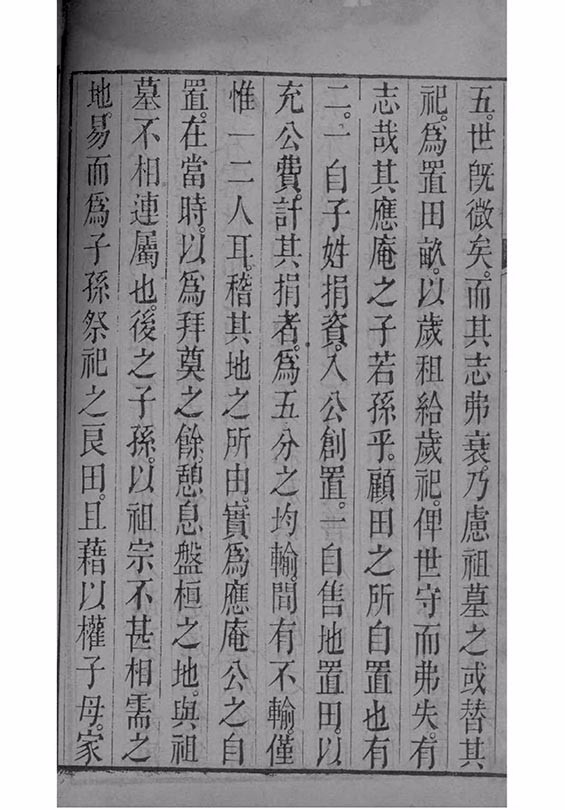 五。世旣微矣。而其志弗衰。乃慮祖墓之或替其
祀。爲置田畝。以歲租給歲祀。俾世守而弗失。有
志哉其應庵之子若孫乎。顧田之所自置也有
二。一自子姓捐資。入公創置。一自售地置田。以
充公費。計其捐者。爲五分之均輸。間有不輸。僅
惟一二人耳。稽其地之所由。實爲應庵公之自
置。在當時。以爲拜奠之餘。憩息盤桓之地。與祖
墓不相連屬也。後之子孫。以祖宗不甚相需之
地。易而爲子孫祭祀之良田。且藉以權子母。家